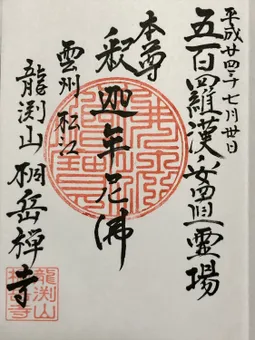 平成廿四年七月卅日
五百羅漢安置靈場
本尊
釈迦牟尼佛
雲州 松江
龍渕山 桐岳禅寺
龍渕山
桐岳寺